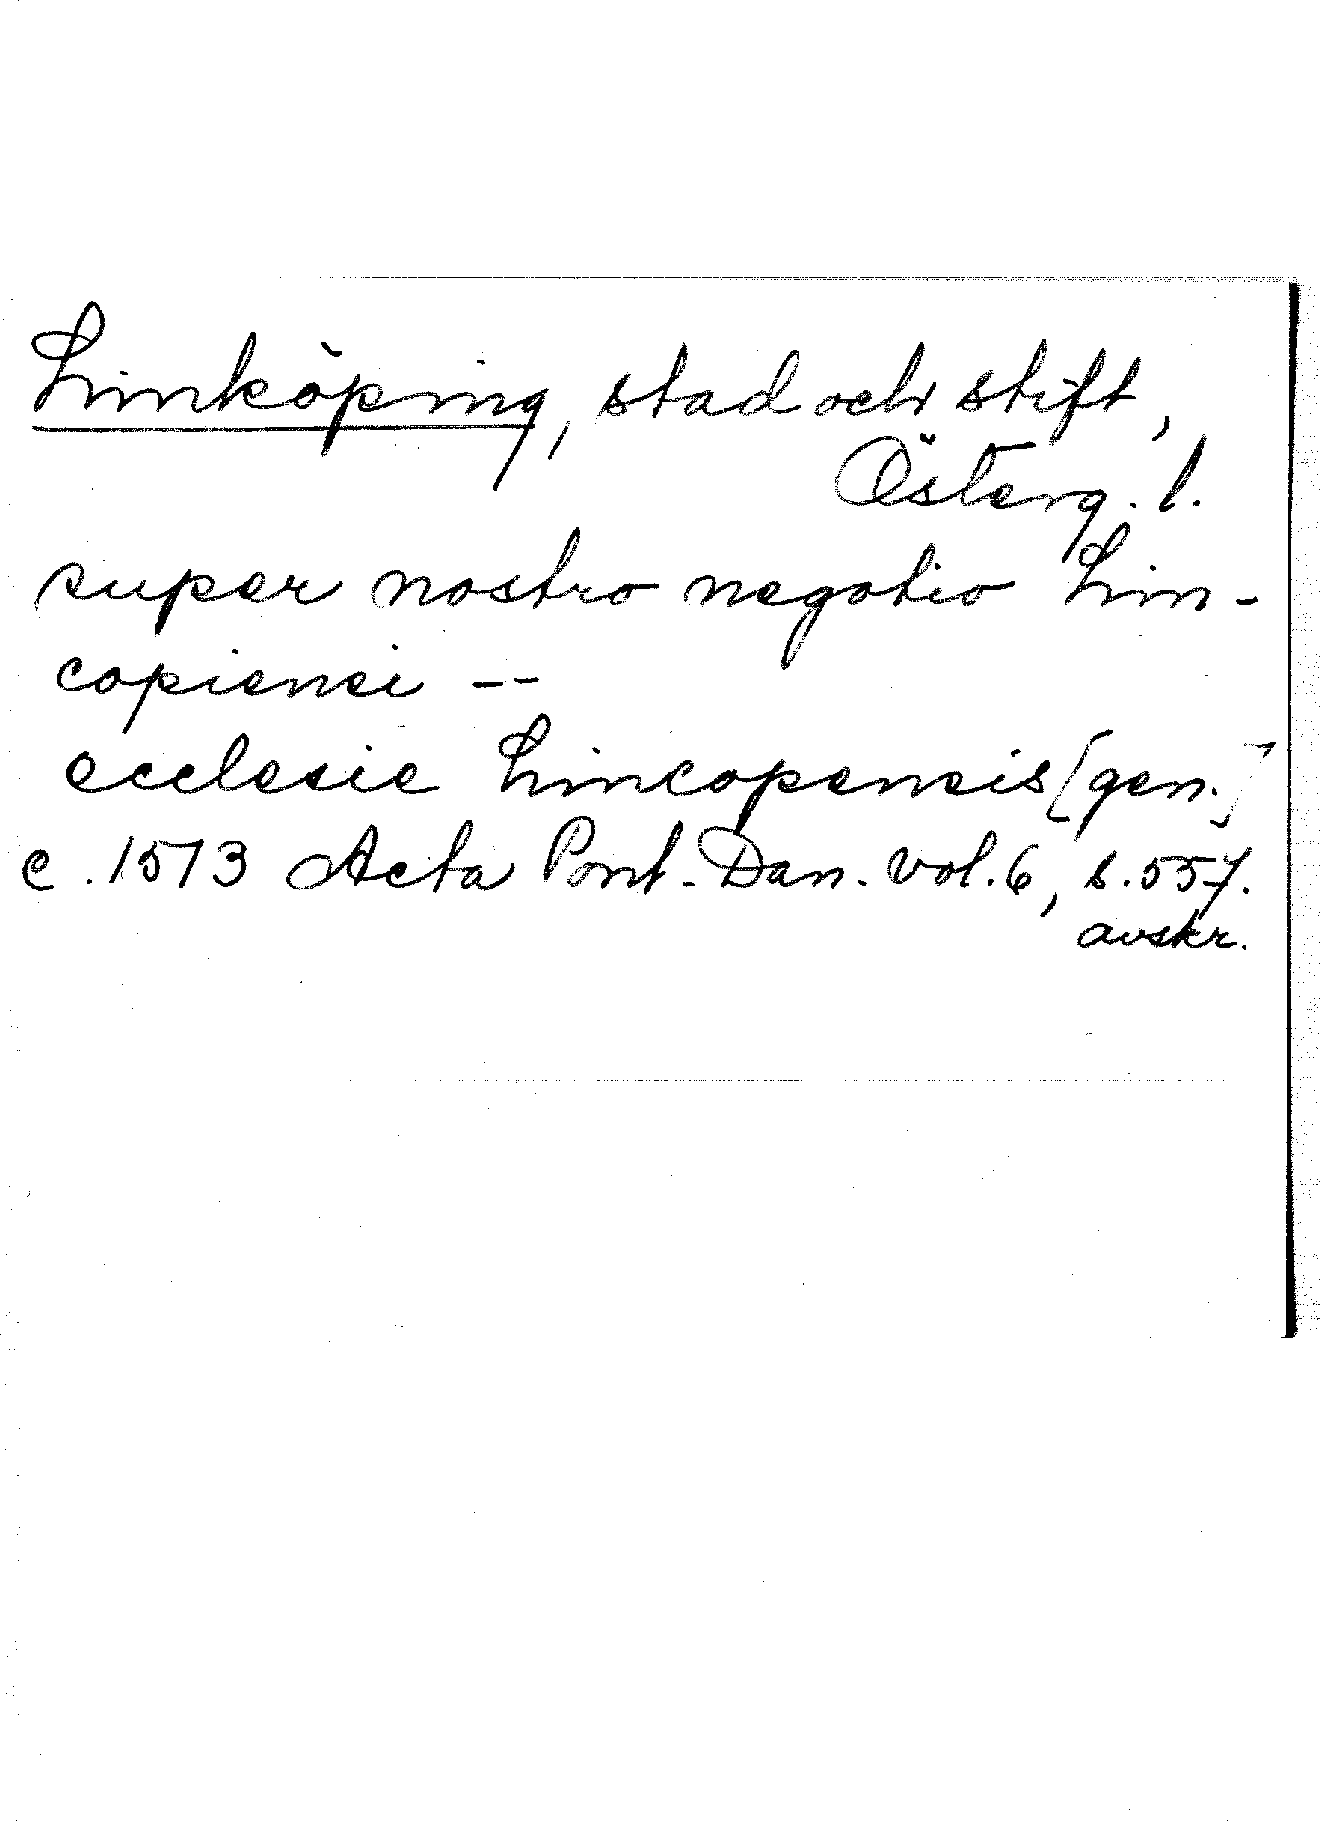 Linköping, stad och stift,
Österg. l.
super nostro negotio Lin-
copiensi --
ecclesie Lincopensis [gen.]
c. 1513 Acta Pont. Dan. vol. 6, s. 557.
avskr.